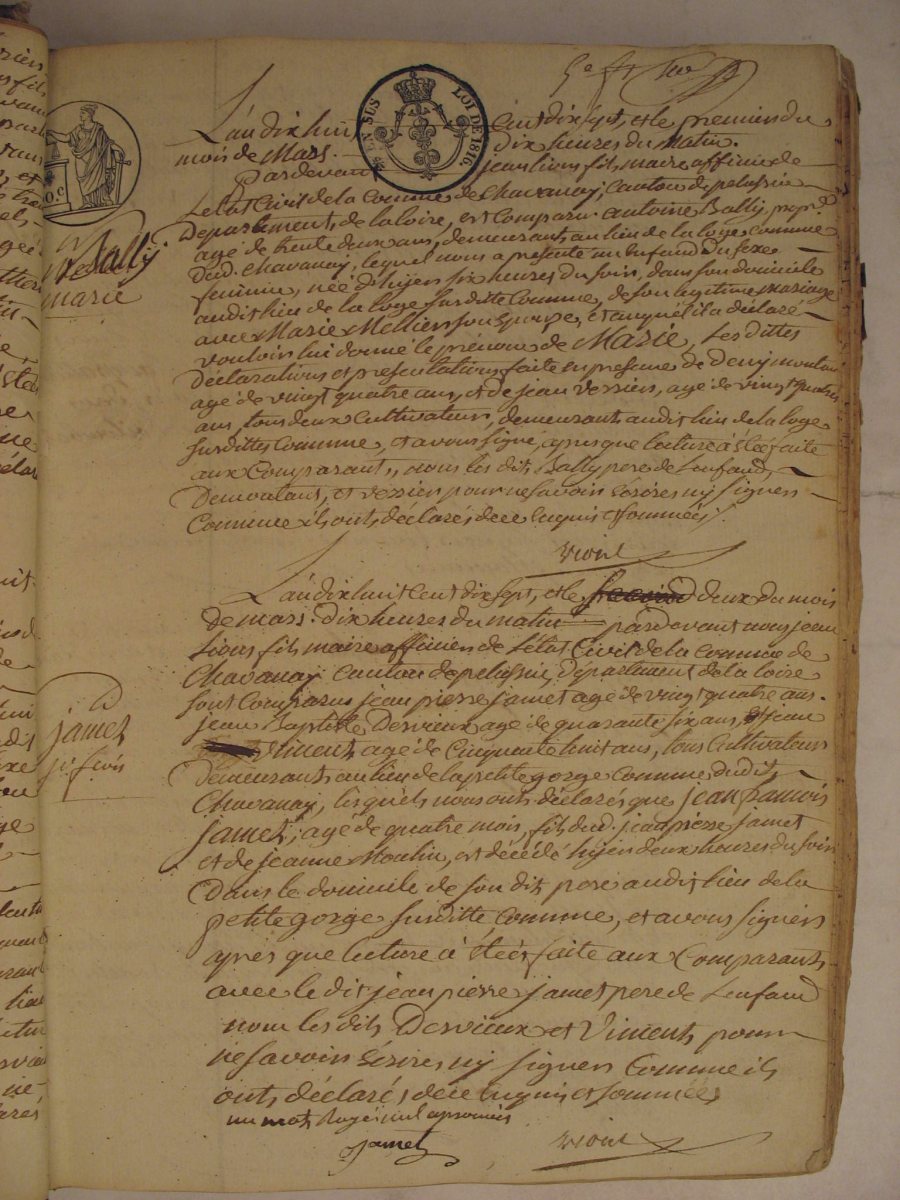 L'an dix huit Cent dix sept, et le premier du
mois de Mars. dix heures du Matin.
Pardevant jean lions fils, maire officier de
L'etat Civil de la Commune de Chavanay, Canton de pelussin
Departement, de la loire, est Comparu antoine Bally propre
agé de trente deux ans, demeurant, au lieu de la loge Commune
dud. Chavanay, lequel nous a présenté un enfand du sexe
feminin, née d'hyer six heures du soir, dans son domicile
audit lieu de la loge surditte Commune, de son legitime mariage
avec Marie Mellier son Epouse, et auquel il a déclaré
vouloir lui donné le prénom de Marie, les dittes
déclarations et présentations, faite en presence de
agé de vingt quatre ans, et de jean verrier, agé de vingt quatre
ans, tous deux Cultivateurs, demeurant audit lieu de la loge
surdittes Commune, et avons signé, apres que lecture à étéé faite
aux Comparants, nous les dits Bally pere de L'enfand,
et verrier pour ne savoir écrires ny signer
Comme ils onts déclarés de ce enquis et sommées.
LOI DE 1816.
EN SUS
Bally
marie
L'an dix huit Cent dix sept, et le deux du mois
de mars. dix heures du matin pardevant nous jean
lions fils maire officier de l'état Civil de la Commune de
Chavanay Canton de pelussin, département de la loire
sont Comparus jean pierre jamet agé de vingt quatre ans.
jean Baptiste Dervieux agé de quarante six ans, et jean
Vincent, agé de Cinquante huit ans, tous Cultivateurs
demeurant, au lieu de la petite gorge Commune dudit
Chavanay, lesquels nous onts déclarés que jean francois
jamet, agé de quatre mois, fils dud. jean pierre jamet
et de jeanne Moulin, est décédé hyer deux heures du soir
Dans le domicile de son dit pere audit lieu de la
petite gorge surditte, Commune, et avons signer
après que lecture à étéé faite aux Comparants
avec le dit jean pierre jamet pere de L'enfand
nom les dits Dervieux et Vincent, pour
ne savoir écrires ny signer Comme ils
onts déclarés de ce enquis et sommées
un mot Rayé nul
jamet
jamet